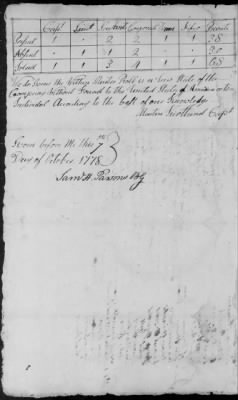 Capt Lieut Serjeant Corporal Drum Fifer Privates
Present 1 1 2 2 1 1 38
Absent 1 1 2
Total 1 1 3 4 1 1 68
We do Swear the Within Muster Roll is a true State of the
Company Without Fraud to the United States of America or to
Individual According to the best of our Knowledge
Capt
Sworn before Me this 7th
Day of October 1778
Saml H. Parsons BG